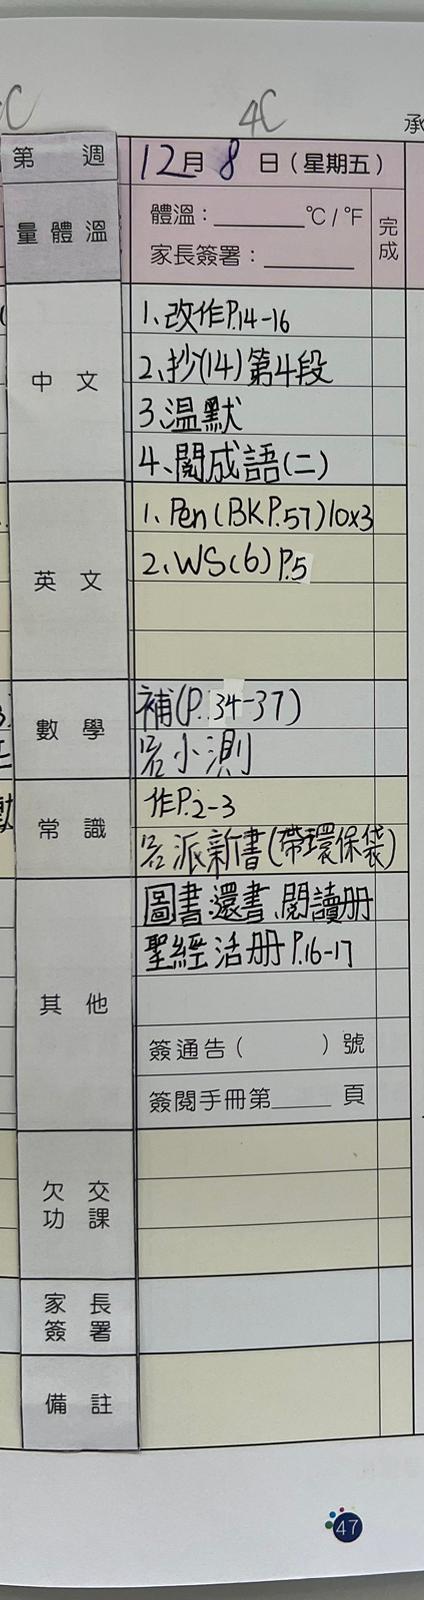 C
4C
承
第 週
12月8日(星期五)
量體溫
體溫：______°C/°F
家長簽署：______
完成
中文
1、改作P.14-16
2、抄(14)第4段
3、温默
4、閱成語(二)
英文
1、Pen(BKP.57)10x3
2、WS(6)P.5
數學
補(P.34-37)
小測
常識
作P.2-3
派新書(帶環保袋)
其他
圖書:還書、閱讀册
聖經活册P.16-17
簽通告( )號
簽閱手冊第____頁
欠交功課
家長簽署
備註
47